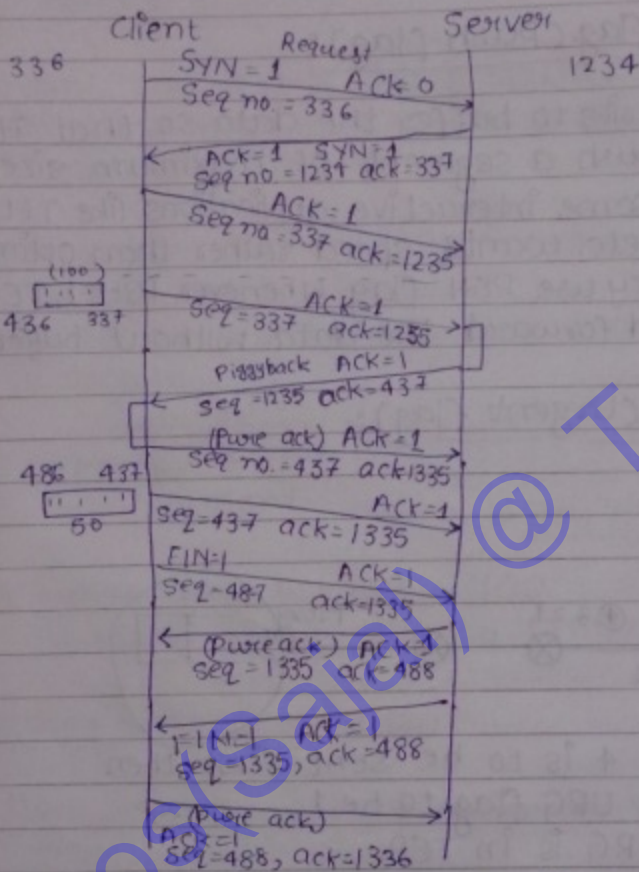 Client Server
336 Request 1234
SYN=1 ACK=0
Seq no.=336
ACK=1 SYN=1
Seq no.=1234 ack=337
ACK=1
Seq no.=337 ack=1235
(100)
436 337
ACK=1
Seq=337 ack=1235
Piggyback ACK=1
Seq=1235 ack=437
(Pure ack) ACK=1
Seq no.=437 ack1335
486 437
50
ACK=1
Seq=437 ack=1335
FIN=1 ACK=1
Seq=487 ack=1335
(Pure ack) ACK=1
Seq=1335 ack=488
FIN=1 ACK=1
Seq=1335, ack=488
(Pure ack)
ACK=1
Seq=488, ack=1336
(Sajal) @ T